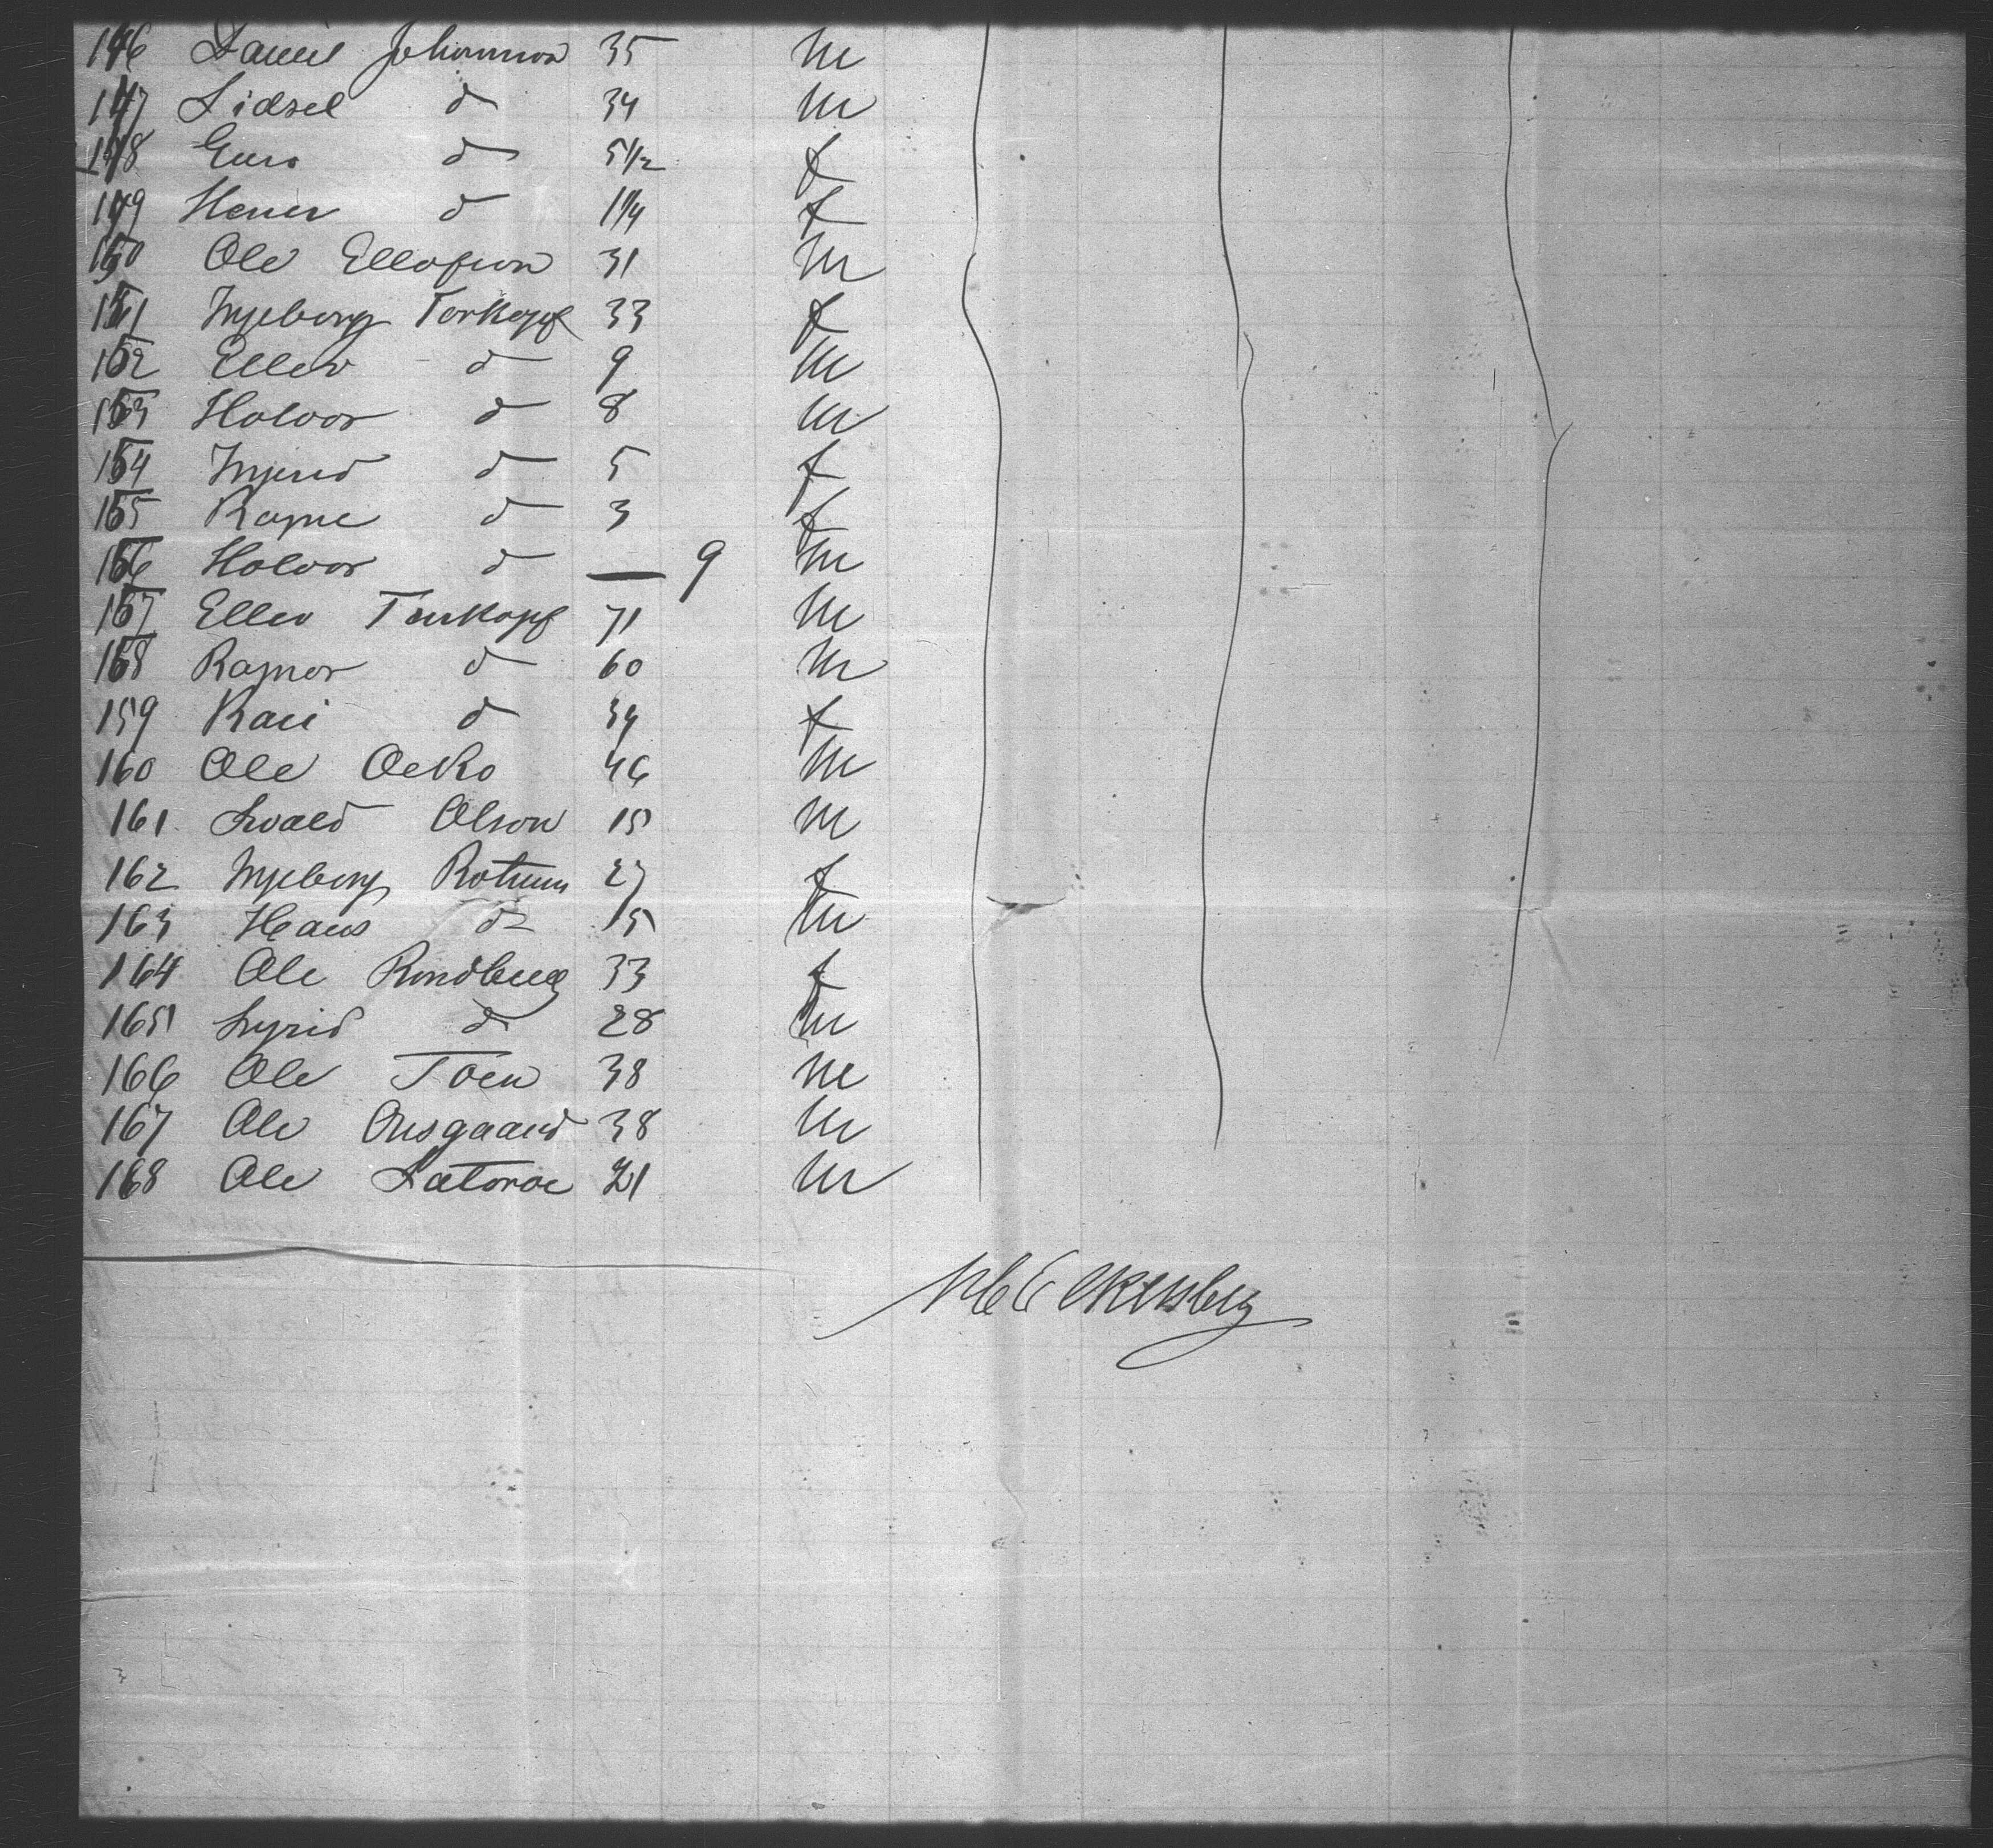 146 Daniel Johannson 35 m
147 Lidsel d 34 m
148 Guro d 5 1/2 f
149 d 1 1/4 f
150 Ole Ellefson 31 m
151 Ingeborg Torkopf 33 f
152 Ellev d 9 m
153 Holvor d 8 m
154 Ingerid d 5 f
155 Ragne d 3 f
156 Holvor d — 9 m
157 Ellev Torkopf 71 m
158 Ragner d 60 m
159 Kari d 34 f
160 Ole Oeko 46 m
161 Olson 15 m
162 Ingeborg 27 f
163 Hans d 15 m
164 Ole Rondberg 33 f
165 d 28 m
166 Ole Toen 38 m
167 Ole Onsgaard 38 m
168 Ole 21 m